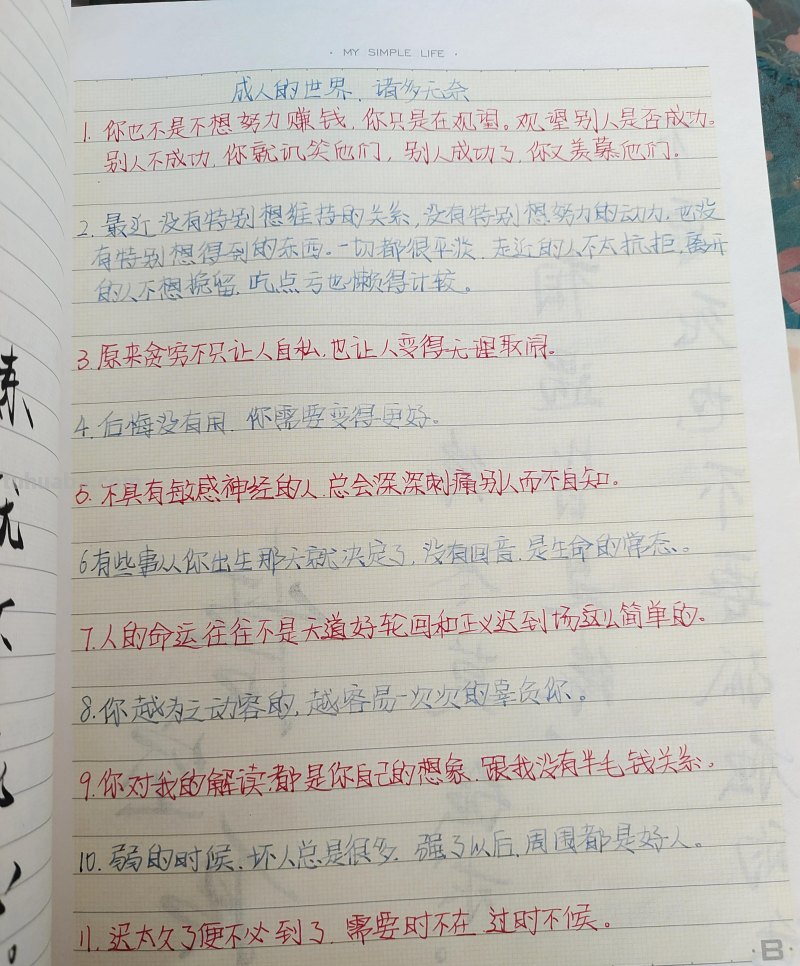 · MY SIMPLE LIFE ·
成人的世界、诸多无奈
1. 你也不是不想努力赚钱，你只是在观望。观望别人是否成功。
别人不成功，你就讥笑他们，别人成功了，你又羡慕他们。
2. 最近没有特别想维持的关系，没有特别想努力的动力，也没
有特别想得到的东西。一切都很平淡，走近的人不太抗拒，离开
的人不想挽留，吃点亏也懒得计较。
3. 原来贫穷不只让人自私，也让人变得无理取闹。
4. 后悔没有用，你需要变得更好。
5. 不具有敏感神经的人，总会深深刺痛别人而不自知。
6 有些事从你出生那天就决定了，没有回音，是生命的常态。
7. 人的命运往往不是天道好轮回和正义迟到场这么简单的。
8. 你越为之动容的，越容易一次次的辜负你。
9. 你对我的解读，都是你自己的想象，跟我没有半毛钱关系。
10. 弱的时候，坏人总是很多，强了以后，周围都是好人。
11. 迟太久了便不必到了，需要时不在，过时不候。
· B ·
练
就
不